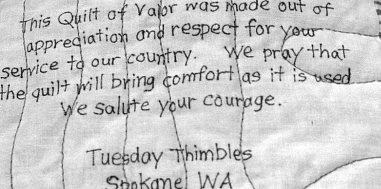 This Quilt of Valor was made out of
appreciation and respect for your
service to our country. We pray that
the quilt will bring comfort as it is used
We salute your courage.
Tuesday Thimbles
Spokane, WA